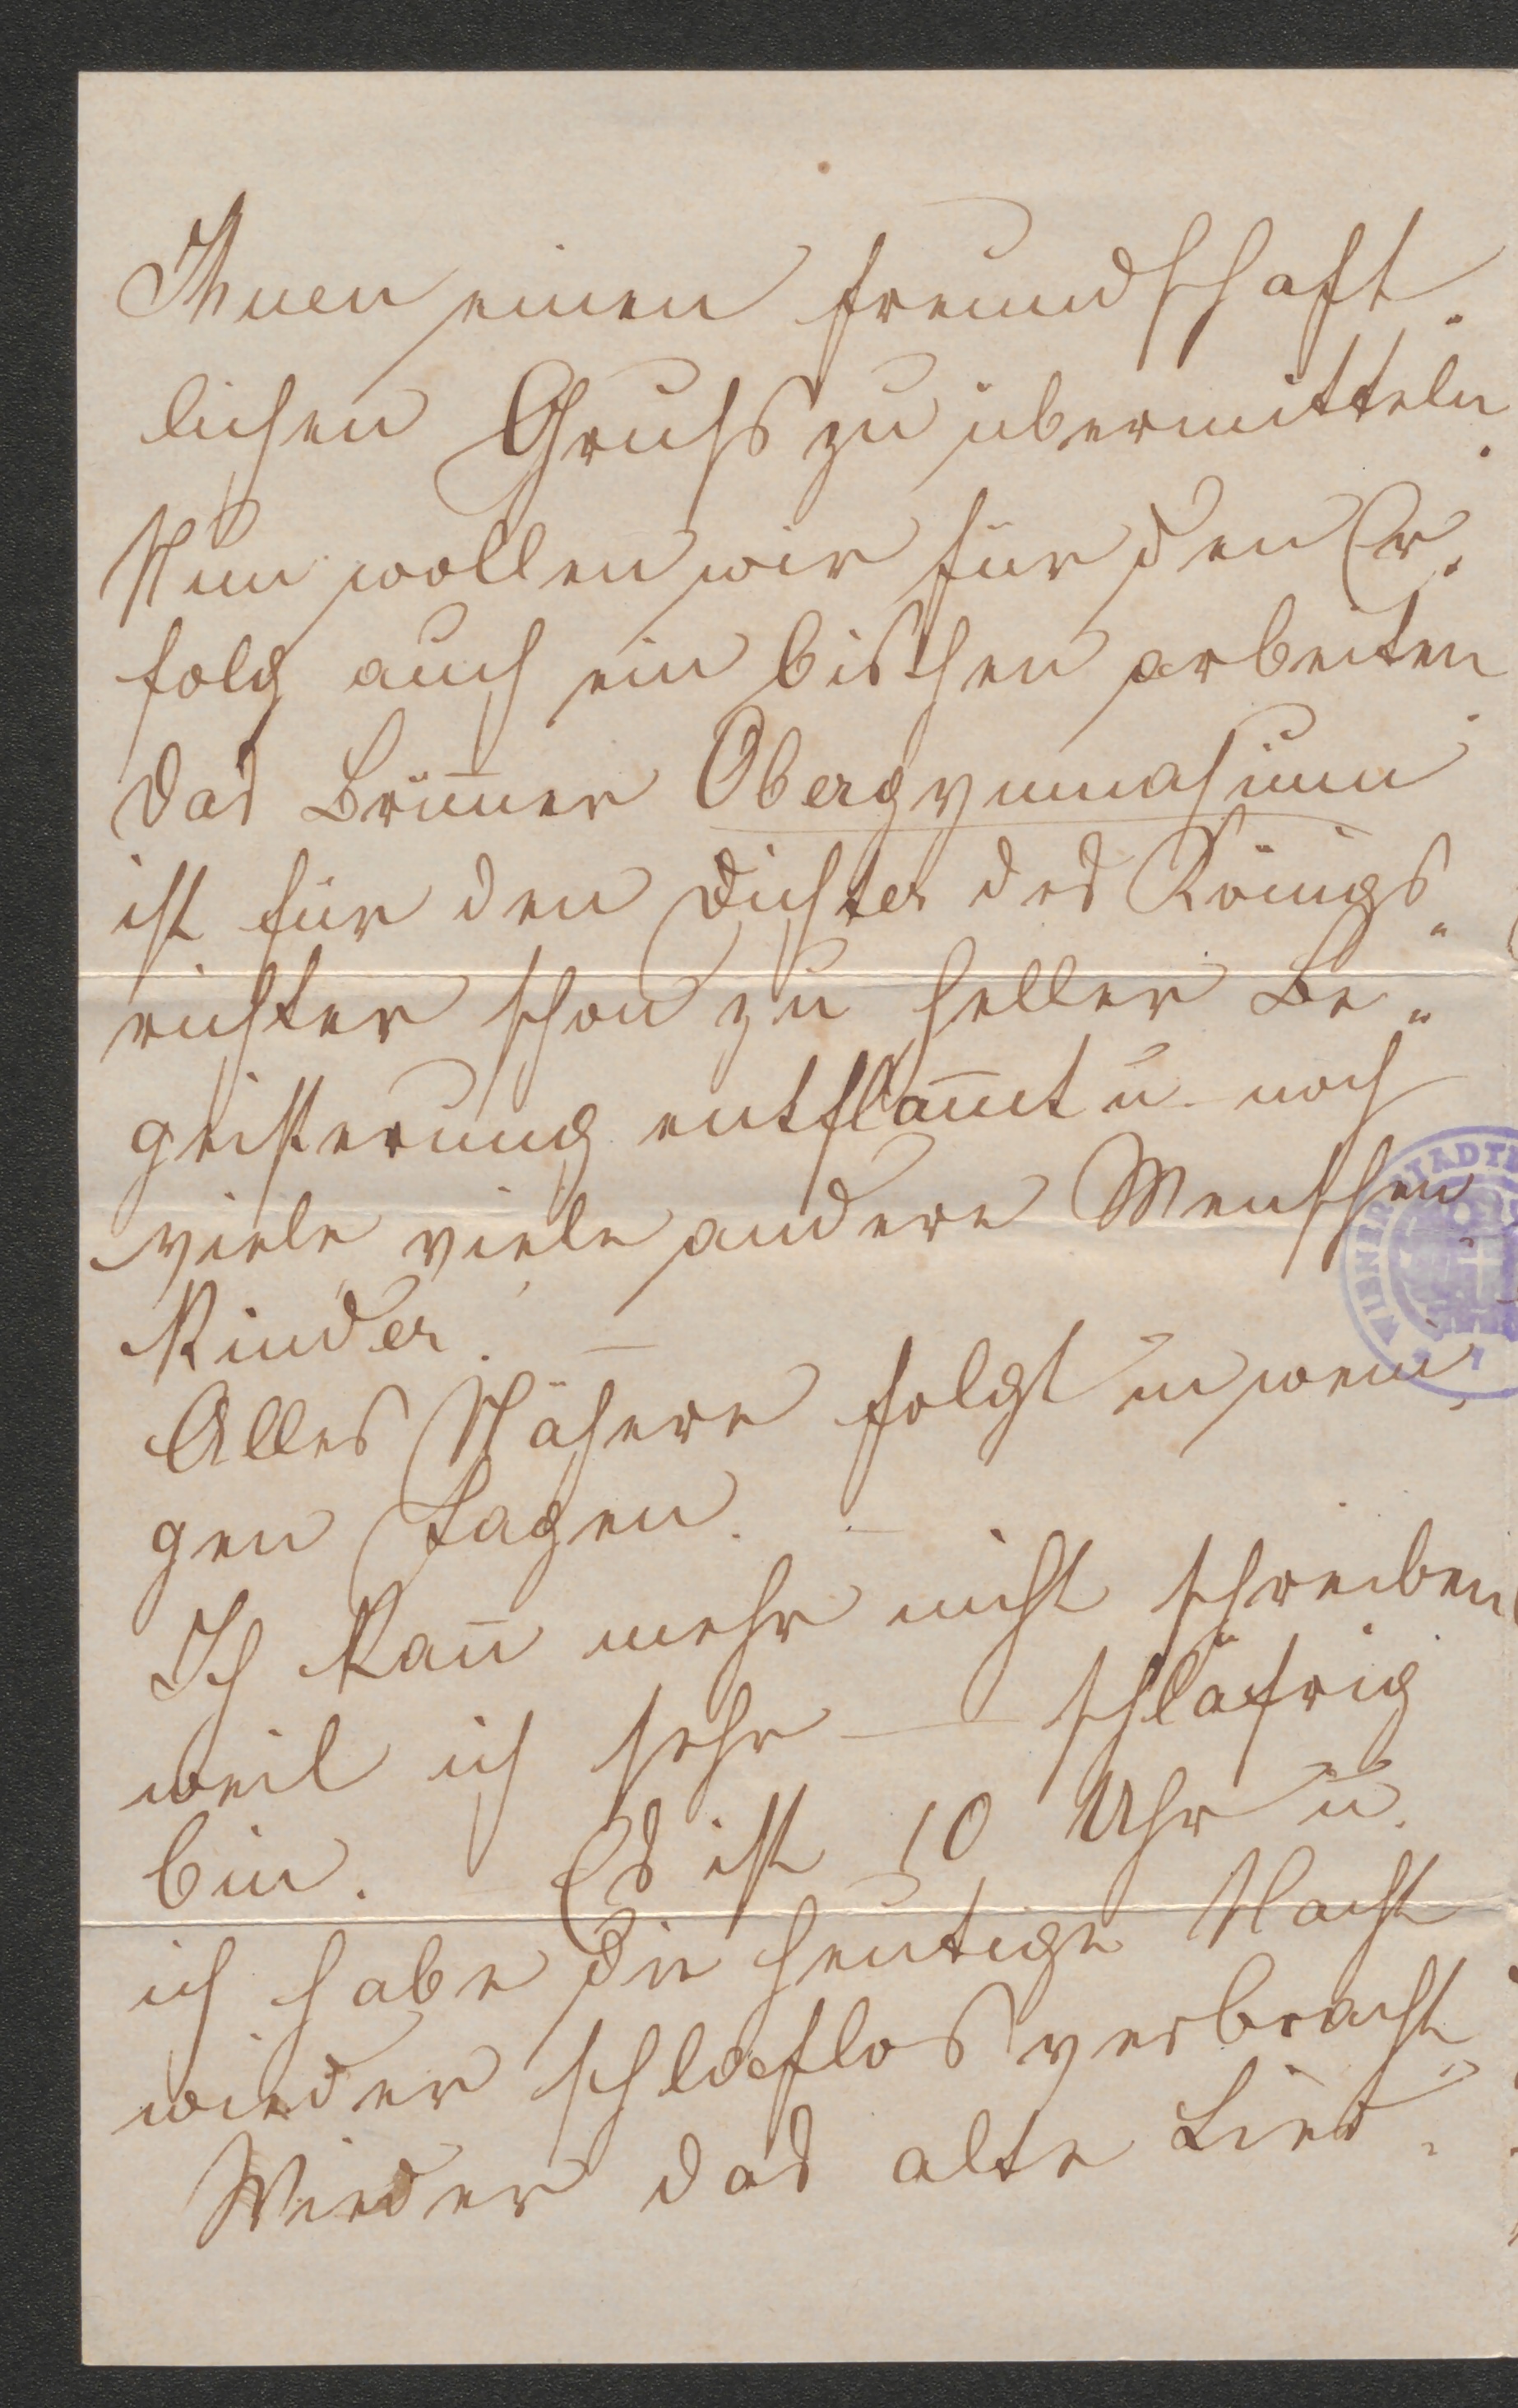 Ihnen einen freundschaft-
lichen Gruß zu übermitteln.
Nun wollen wir für den Er-
folg auch ein bischen arbeiten.
Das Brün̅er Obergymnasium
ist für den Dichter des Königs-
richter schon zu heller Be-
geisterung entflam̅t u. noch
viele viele andere Menschen
Kinder. —
Alles Nähere folgt in weni-
gen Tagen. —
Ich kan̅ mehr nicht schreiben
weil ich sehr — schläfrig
bin. — Es ist 10 Uhr u.
ich habe die heutige Nacht
wieder schlaflos verbracht.
Wieder das alte Lied.
WIENER STADT